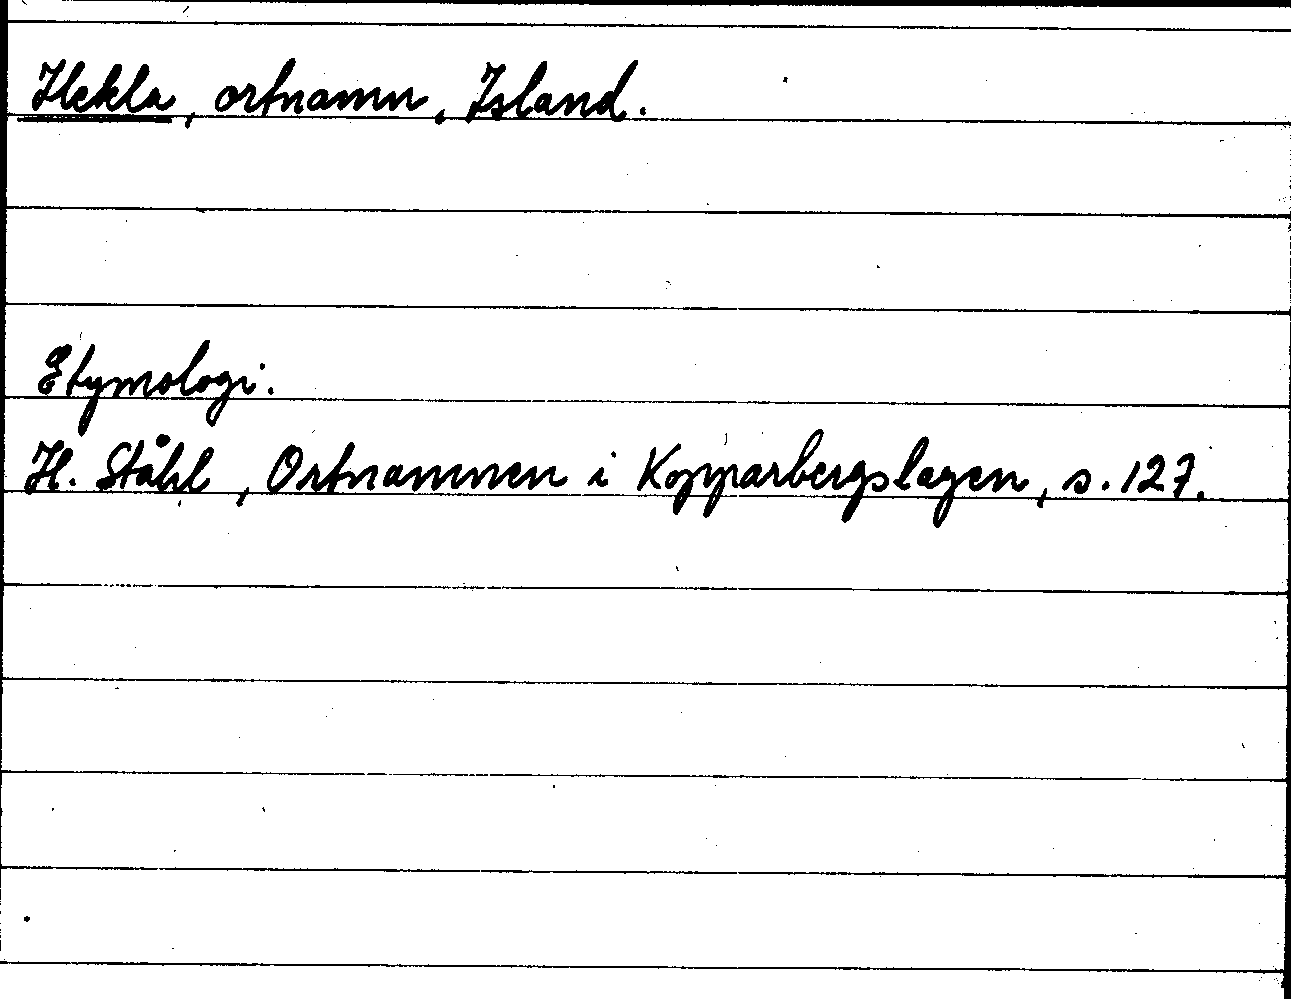 Hekla, ortnamn, Island.
Etymologi.
H. Ståhl, Ortnamnen i Kopparbergslagen, s. 127.